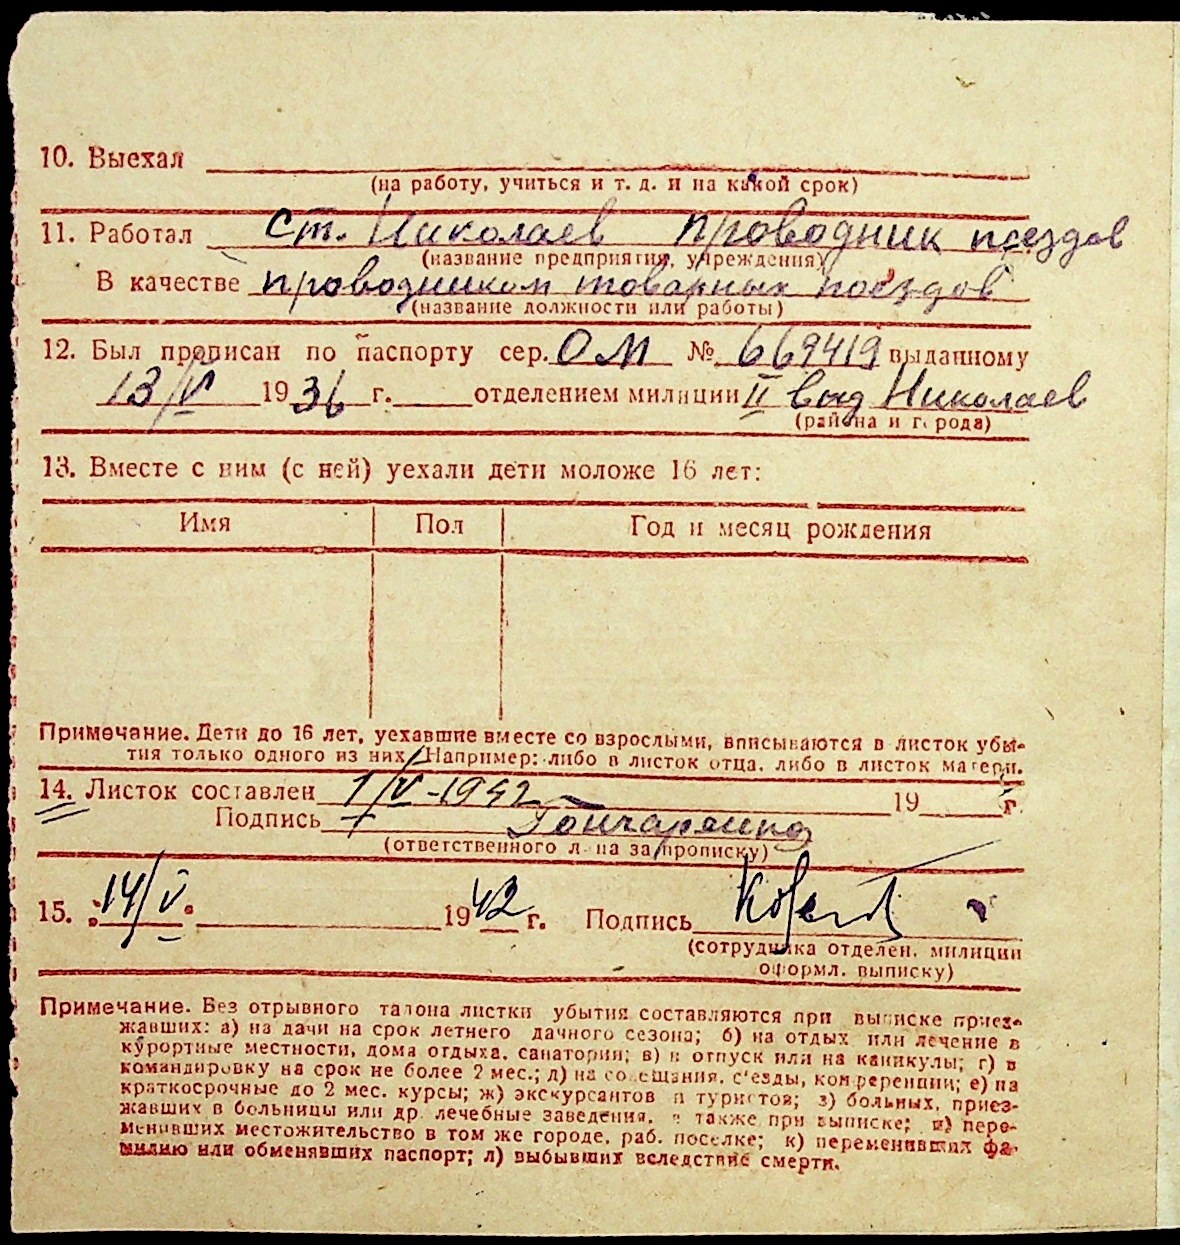 10. Выехал
(на работу, учиться и т. д. и на какой срок)
11. Работал ст. Николаев проводник поездов
(название предприятия, учреждения)
В качестве проводником товарных поездов
(название должности или работы)
12. Был прописан по паспорту сер. ОМ № 669419 выданному
13/V 1936 г. отделением милиции II выд Николаев
(района и города)
13. Вместе с ним (с ней) уехали дети моложе 16 лет:
Имя Пол Год и месяц рождения
Примечание. Дети до 16 лет, уехавшие вместе со взрослыми, вписываются в листок убы-
тия только одного из них. Например: либо в листок отца, либо в листок матери.
14. Листок составлен 1/V-1942 19 г.
Подпись Гончаренко
(ответственного лица за прописку)
15. „14/V“ 1942 г. Подпись
(сотрудника отделен. милиции
оформл. выписку)
Примечание. Без отрывного талона листки убытия составляются при выписке приез-
жавших: а) на дачи на срок летнего дачного сезона; б) на отдых или лечение в
курортные местности, дома отдыха, санатории; в) в отпуск или на каникулы; г) в
командировку на срок не более 2 мес.; д) на совещания, с'езды, конференции; е) на
краткосрочные до 2 мес. курсы; ж) экскурсантов и туристов; з) больных, приез-
жавших в больницы или др. лечебные заведения, а также при выписке; и) пере-
менивших местожительство в том же городе, раб. поселке; к) переменивших фа-
милию или обменявших паспорт; л) выбывших вследствие смерти.